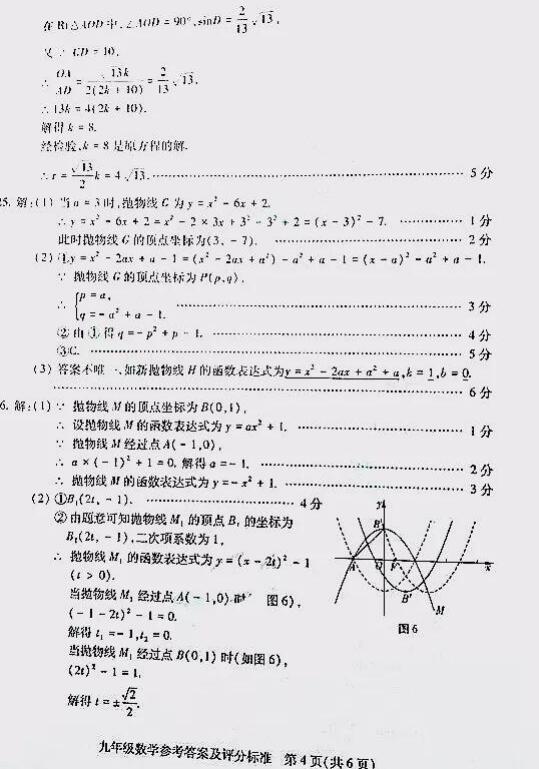 在 Rt△AOD 中,∠AOD = 90°,sinD = 2/13 √13,
又∵ CD = 10,
∴ OA/AD = √13k/2(2k + 10) = 2/13 √13,
∴ 13k = 4(2k + 10).
解得 k = 8.
经检验,k = 8 是原方程的解.
∴ r = √13/2 k = 4√13. …… 5 分
25. 解:(1) 当 a = 3 时,抛物线 G 为 y = x² - 6x + 2.
∴ y = x² - 6x + 2 = x² - 2 × 3x + 3² - 3² + 2 = (x - 3)² - 7. …… 1 分
此时抛物线 G 的顶点坐标为(3, - 7). …… 2 分
(2) ① y = x² - 2ax + a - 1 = (x² - 2ax + a²) - a² + a - 1 = (x - a)² - a² + a - 1.
∵ 抛物线 G 的顶点坐标为 P(p,q),
∴ {p = a,
q = - a² + a - 1. …… 3 分
② 由 ① 得 q = - p² + p - 1. …… 4 分
③C. …… 5 分
(3) 答案不唯一,如新抛物线 H 的函数表达式为 y = x² - 2ax + a² + a,k = 1,b = 0.
…… 6 分
26. 解:(1) ∵ 抛物线 M 的顶点坐标为 B(0,1),
∴ 设抛物线 M 的函数表达式为 y = ax² + 1. …… 1 分
∵ 抛物线 M 经过点 A( - 1,0),
∴ a × ( - 1)² + 1 = 0, 解得 a = - 1. …… 2 分
∴ 抛物线 M 的函数表达式为 y = - x² + 1. …… 3 分
(2) ①B₁(2t, - 1). …… 4 分
② 由题意可知抛物线 M₁ 的顶点 B₁ 的坐标为
B₁(2t, - 1),二次项系数为 1,
∴ 抛物线 M₁ 的函数表达式为 y = (x - 2t)² - 1
(t > 0).
当抛物线 M₁ 经过点 A( - 1,0) 时 图 6),
( - 1 - 2t)² - 1 = 0.
解得 t₁ = - 1,t₂ = 0.
当抛物线 M₁ 经过点 B(0,1) 时(如图 6),
(2t)² - 1 = 1,
解得 t = ± √2/2.
y
B
A
O
x
B'
M
图 6
九年级数学参考答案及评分标准 第 4 页(共 6 页)